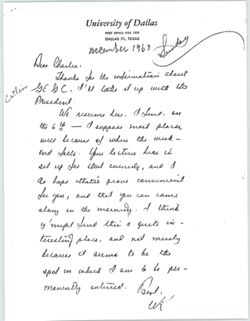 University of Dallas
POST OFFICE BOX 1330
DALLAS 21, TEXAS
December 1963
Sunday
Dear Charlie,
Thanks for the information about
GEGC. I'll take it up with the
President.
We resume here, I find, on
the 6th — I suppose most places
will because of when the week-
end falls. You lecture here is
set up for that evening, and I
do hope that's convenient
for you, and that you can come
along in the morning. I think
y'might find this a quite in-
teresting place, and not merely
because it seems to be the
spot in which I am to be per-
manently interred.
Best,